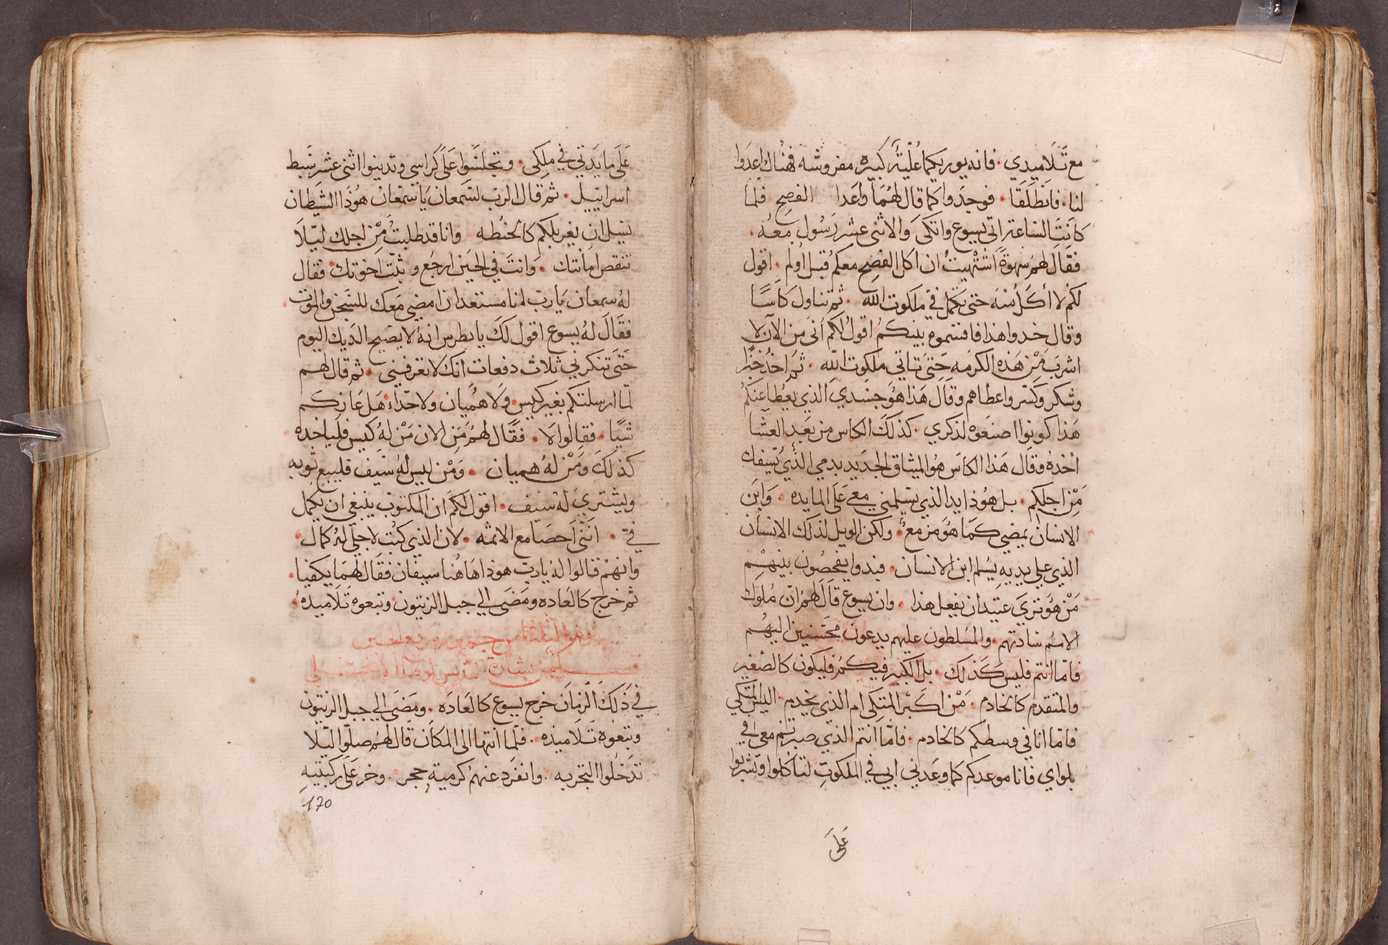 مع تلاميدي . فانه يوريكما عُليّة كبيره مفروشه فهناك اعدوا
لنا . فانطلقا . فوجدوا كما قال لهما واعدا الفصح فلما
كانت الساعه اتى يسوع واتكى والاثنى عشر رسول معه .
فقال لهم شهوة اشتهيت ان اكل الفصح معكم قبل اولم . اقول
لكم لا اكل منه حتى يكمل في ملكوت الله . ثم تناول كاسًا
وقال خدوا هذا فاقتسموه بينكم اقول لكم انى من الآن لا
اشرب من هذه الكرمه حتى تاتي ملكوت الله . ثم اخد خبزًا
وشكر وكسر واعطاهم وقال هذا هو جسدي الذي يعطا عنكم
هذا كونوا اصنعوه لذكري . كذلك الكاس من بعد العشا
اخده وقال هذا الكاس هو الميثاق الجديد بدمي الذي يسفك
من اجلكم . بل هوذا يد الذي يسلمني معي على المايده . وابن
الانسان يمضي كما هو مزمع . ولكن الويل لذلك الانسان
الذي على يديه يسلم ابن الانسان . فبدوا يفحصون بينهم
من هو ترى عتيد ان يفعل هذا . وان يسوع قال لهم ان ملوك
الامم سادتهم . والمسلطون عليهم يدعون محسنين اليهم
فاما انتم فليس كذلك . بل الكبير فيكم فليكون كالصغير
والمتقدم كالخادم . من اكبر المتكى ام الذي يخدم . اليس المتكي
فاما انا في وسطكم كالخادم . فاما انتم الذي صبرتم معى في
بلواي فانا موعدكم كما وعدني ابي في الملكوت لتاكلوا وتشربوا
على
على مايدتي في ملكى . وتجلسوا على كراسى وتدينوا اثنى عشر سبط
اسراييل . ثم قال الرب لسمعان يا سمعان هوذا الشيطان
يسل ان يغربلكم كالحنطه وانا قد طلبت من اجلك ليلا
تنقص امانتك . وانت في الحين ارجع وثبت اخوتك . فقال
له سمعان يارب انا مستعد ان امضى معك للسجن والموت .
فقال له يسوع اقول لك يا بطرس انه لا يصيح الديك اليوم
حتى تنكرني ثلاث دفعات انك لا تعرفني . ثم قال لهم
لما ارسلتكم بغير كيس ولا هميان ولا حدا . هل عازكم
شيًا . فقالوا لا . فقال لهم من الان من له كيس فلياخده
كذلك ومن له هميان . ومن ليس له سيف فليبع ثوبه
ويشترى له سيف . اقول لكم ان المكتوب ينبغي ان يكمل
في . انني احصا مع الاثمه . لان الذي كتب لاجلى له كمال .
وانهم قالوا له يارب هوذا هاهنا سيفان فقال لهما يكفيا .
ثم خرج كالعاده ومضى الى جبل الزيتون وتبعوه تلاميذه .
في ذلك الزمان خرج يسوع كالعاده . ومضى الى جبل الزيتون
وتبعوه تلاميذه . فلما انتها الى المكان قال لهم صلوا ليلا
تدخلوا التجربه . وانفرد عنهم كرمية حجر . وخر على ركبتيه
170